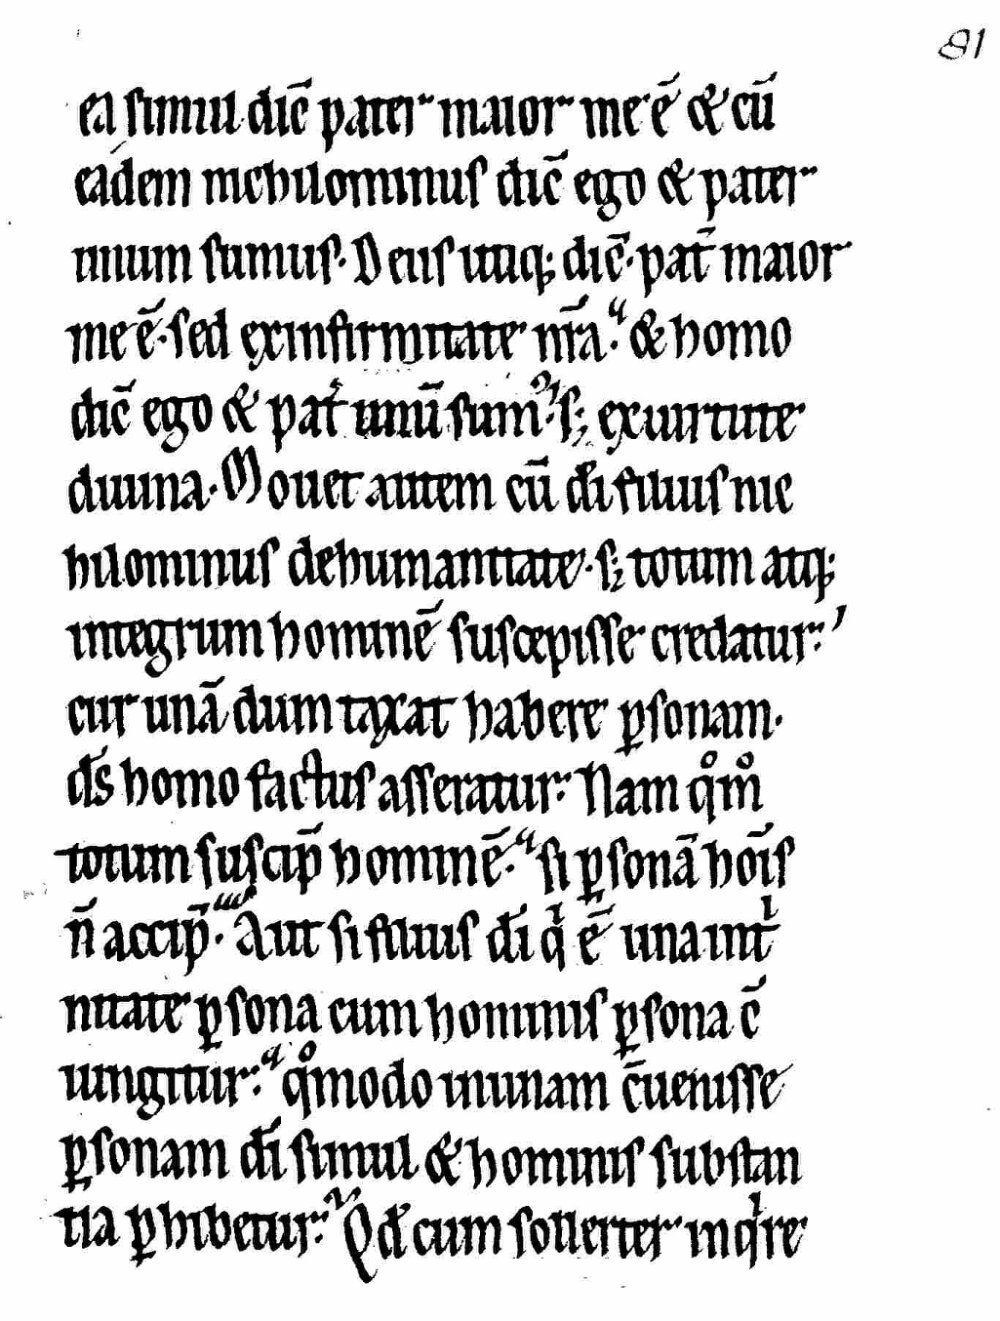 81
ea simul dic̄ pater maior me ē & cū
eádem nichilominus dic̄ ego & pater
unum sumus. Deus utiq; dic̄. pat̄ maior
me ē. sed ex infirmitate nr̄a. & homo
dic̄ ego & pat̄ unū sum᷒. s; ex uirtute
diuina. Mouet autem cū dī filius nic
hilominus de humanitate. s; totum atq;
integrum hominē suscepisse credatur.
cur unā dum taxat habere ꝑsonam.
ds̄ homo factus asseratur. Nam qͦmͦ
totum suscip̄ hominē. si ꝑsonā hoīs
n̄ accip̄. Aut si filius dī qⁱ ē una int̄
nitate ꝑsona cum hominis ꝑsona c̄
iungitur. qͦmodo in unam c̄uenisse
ꝑsonam dī simul & hominis substan
tia ꝑhibetur. Qd̄ cum sollerter inqⁱre